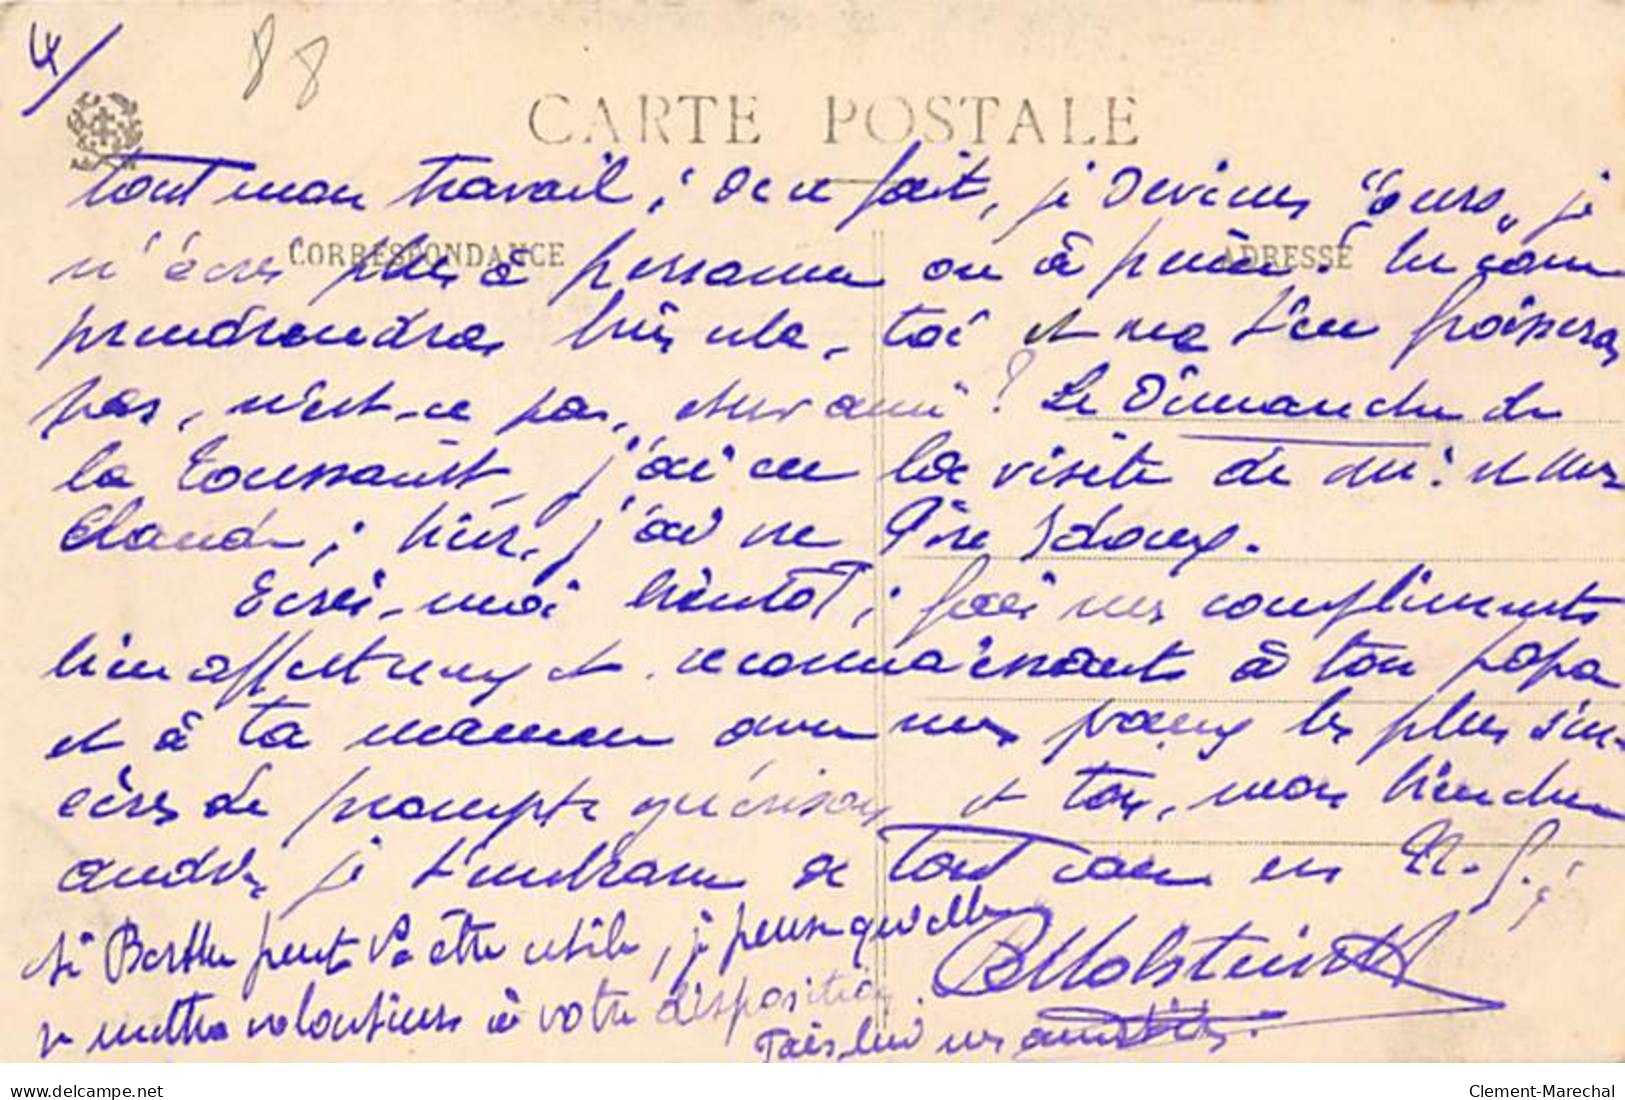 4/
88
CARTE POSTALE
tout mon travail ; de ce fait, je deviens "ours" je
CORRESPONDANCE
ADRESSE
n'écris plus à personne ou à peine. Tu com
prendras bien cela, toi et ne t'en froisseras
pas, n'est-ce pas, cher ami ? Le Dimanche de
la Toussaint, j'ai eu la visite de
Claude ; hier, j'ai vu Père
Ecris-moi bientôt ; fais mes compliments
bien affectueux et reconnaissants à ton papa
et à ta maman avec mes voeux les plus sin-
cères de prompte guérison et toi, mon bien cher
andré, je t'embrasse de tout coeur en N. S. ;
si Berthe peut vs être utile, je pense qu'elle
se mettra volontiers à votre disposition.
Fais-lui mes amitiés.
Clement-Marechal
delcampe.net